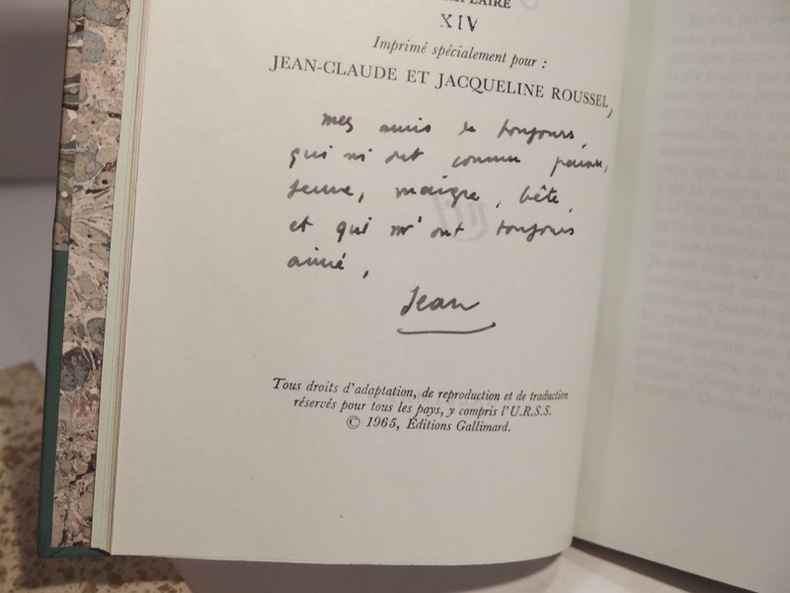 XIV
Imprimé spécialement pour :
JEAN-CLAUDE ET JACQUELINE ROUSSEL,
mes amis de toujours,
qui m'ont connu pauvre,
jeune, maigre, bête,
et qui m'ont toujours
aimé,
Jean
Tous droits d'adaptation, de reproduction et de traduction
réservés pour tous les pays, y compris l'U.R.S.S.
© 1965, Éditions Gallimard.